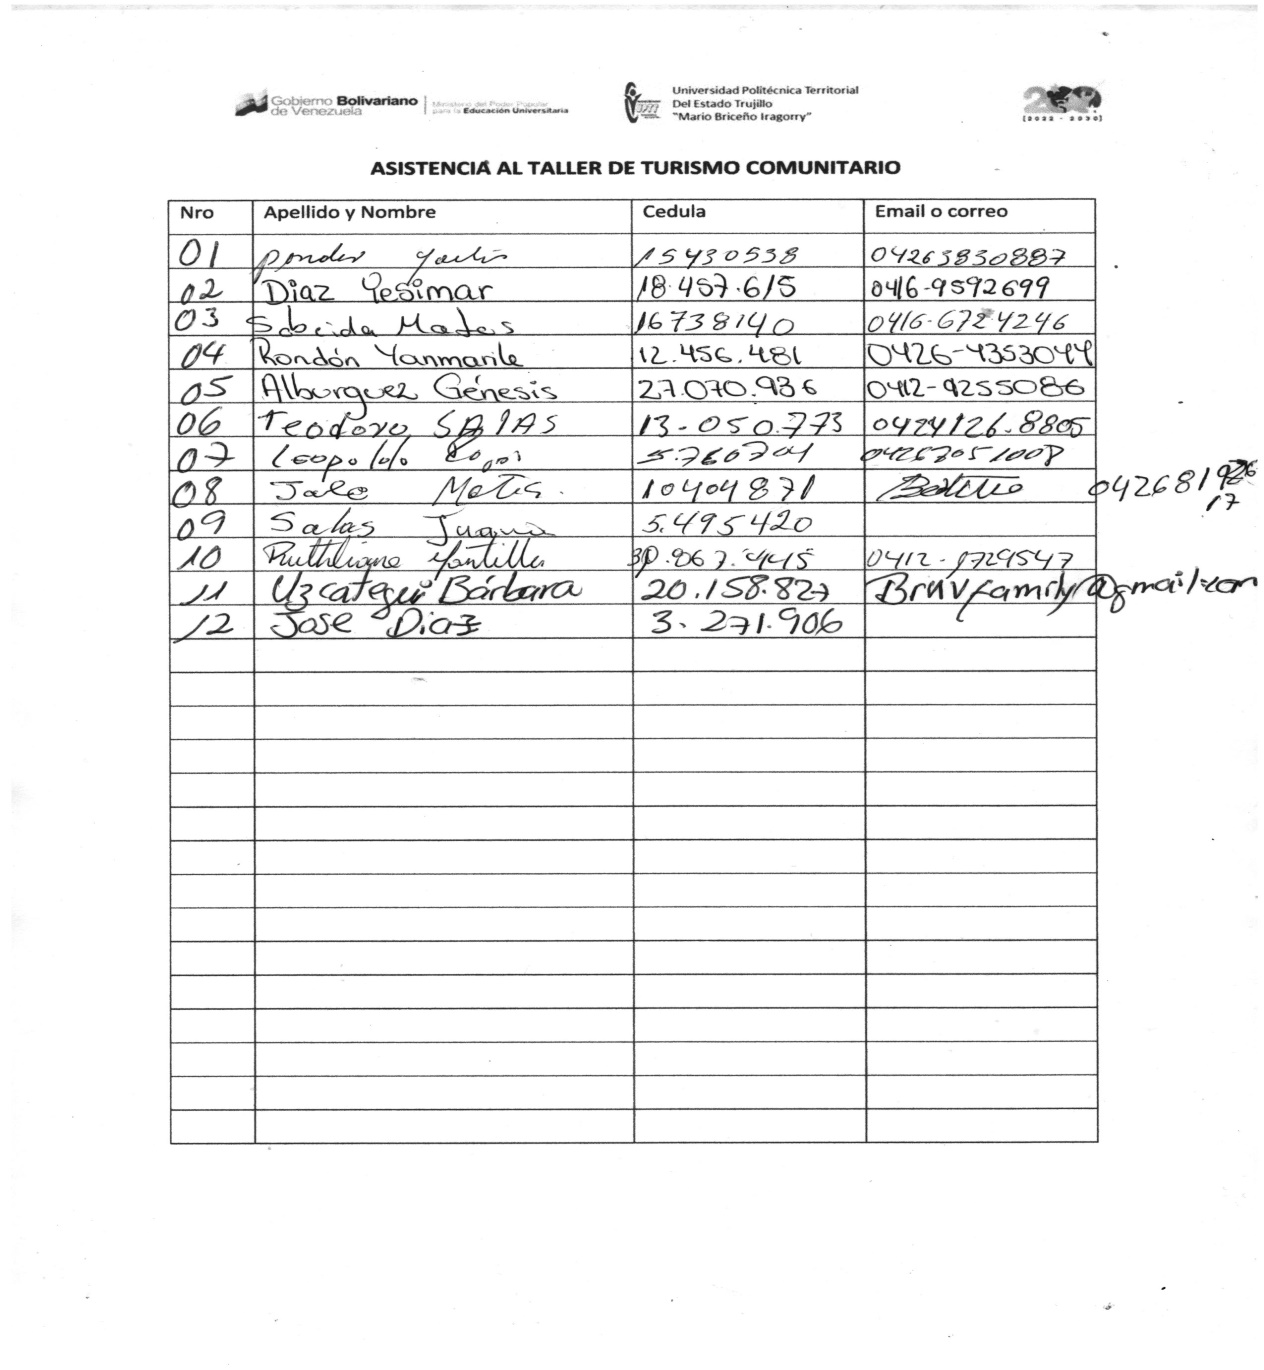 Gobierno Bolivariano de Venezuela
Ministerio del Poder Popular para la Educación Universitaria
Universidad Politécnica Territorial
Del Estado Trujillo
"Mario Briceño Iragorry"
[2022 - 2030]
ASISTENCIA AL TALLER DE TURISMO COMUNITARIO
Nro Apellido y Nombre Cedula Email o correo
01 15430538 04263830887
02 Diaz Yesimar 18.457.615 0416-9592699
03 Sobeida Matos 16738140 0416-6724246
04 Rondón Yanmarile 12.456.481 0426-4353044
05 Alburguez Génesis 27.070.936 0412-9255086
06 Teodoro SALAS 13-050.773 0424126.8805
07 Leopoldo 5.760704
08 10404871 0426819
17
09 Salas Juana 5.495420
10 0412-1729547
11 Uzcategui Bárbara 20.158.827
12 Jose Diaz 3.271.906